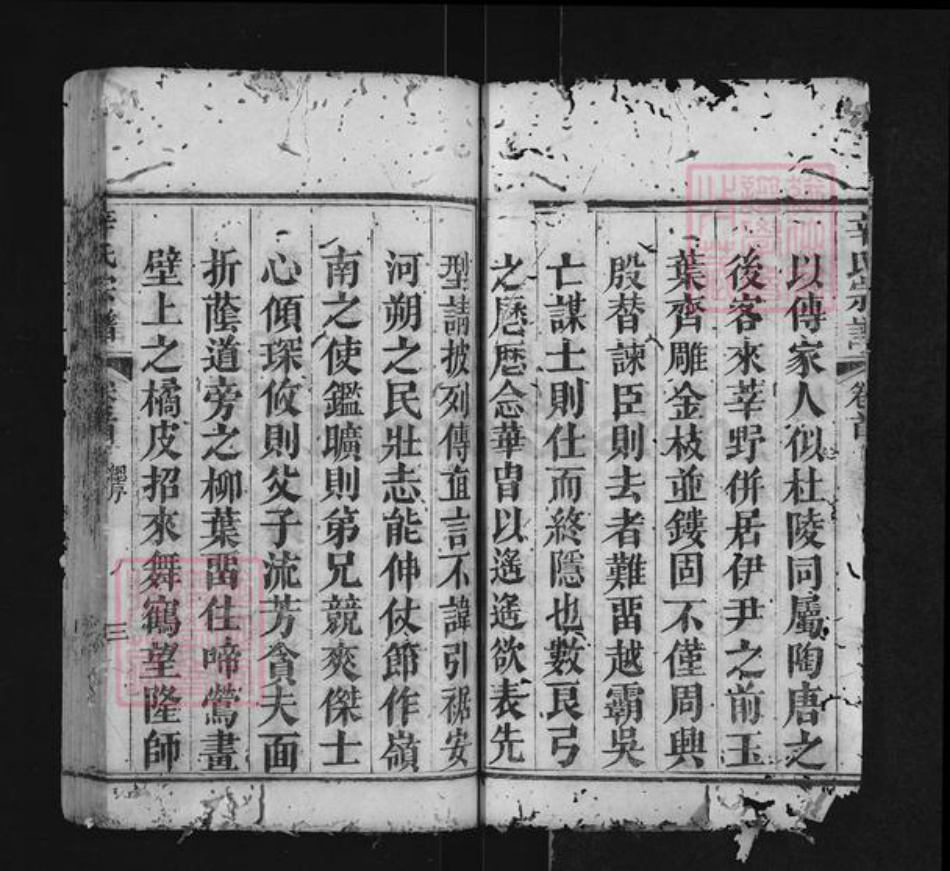 辛氏宗譜 卷首
以傳家人似杜陵同屬陶唐之
後客來莘野併居伊尹之前玉
葉齊雕金枝並鏤固不僅周興
殷替諫臣則去者難畱越霸吳
亡謀士則仕而終隱也數良弓
之歷歷念華胄以遙遙欲表先
型請披列傳直言不諱引裾安
河朔之民壯志能伸仗節作嶺
南之使鑑曠則弟兄競爽傑士
心傾琛攸則父子流芳貪夫面
折蔭道旁之柳葉畱住啼鶯畫
壁上之橘皮招來舞鶴望隆師
氏宗譜 卷首 序 三